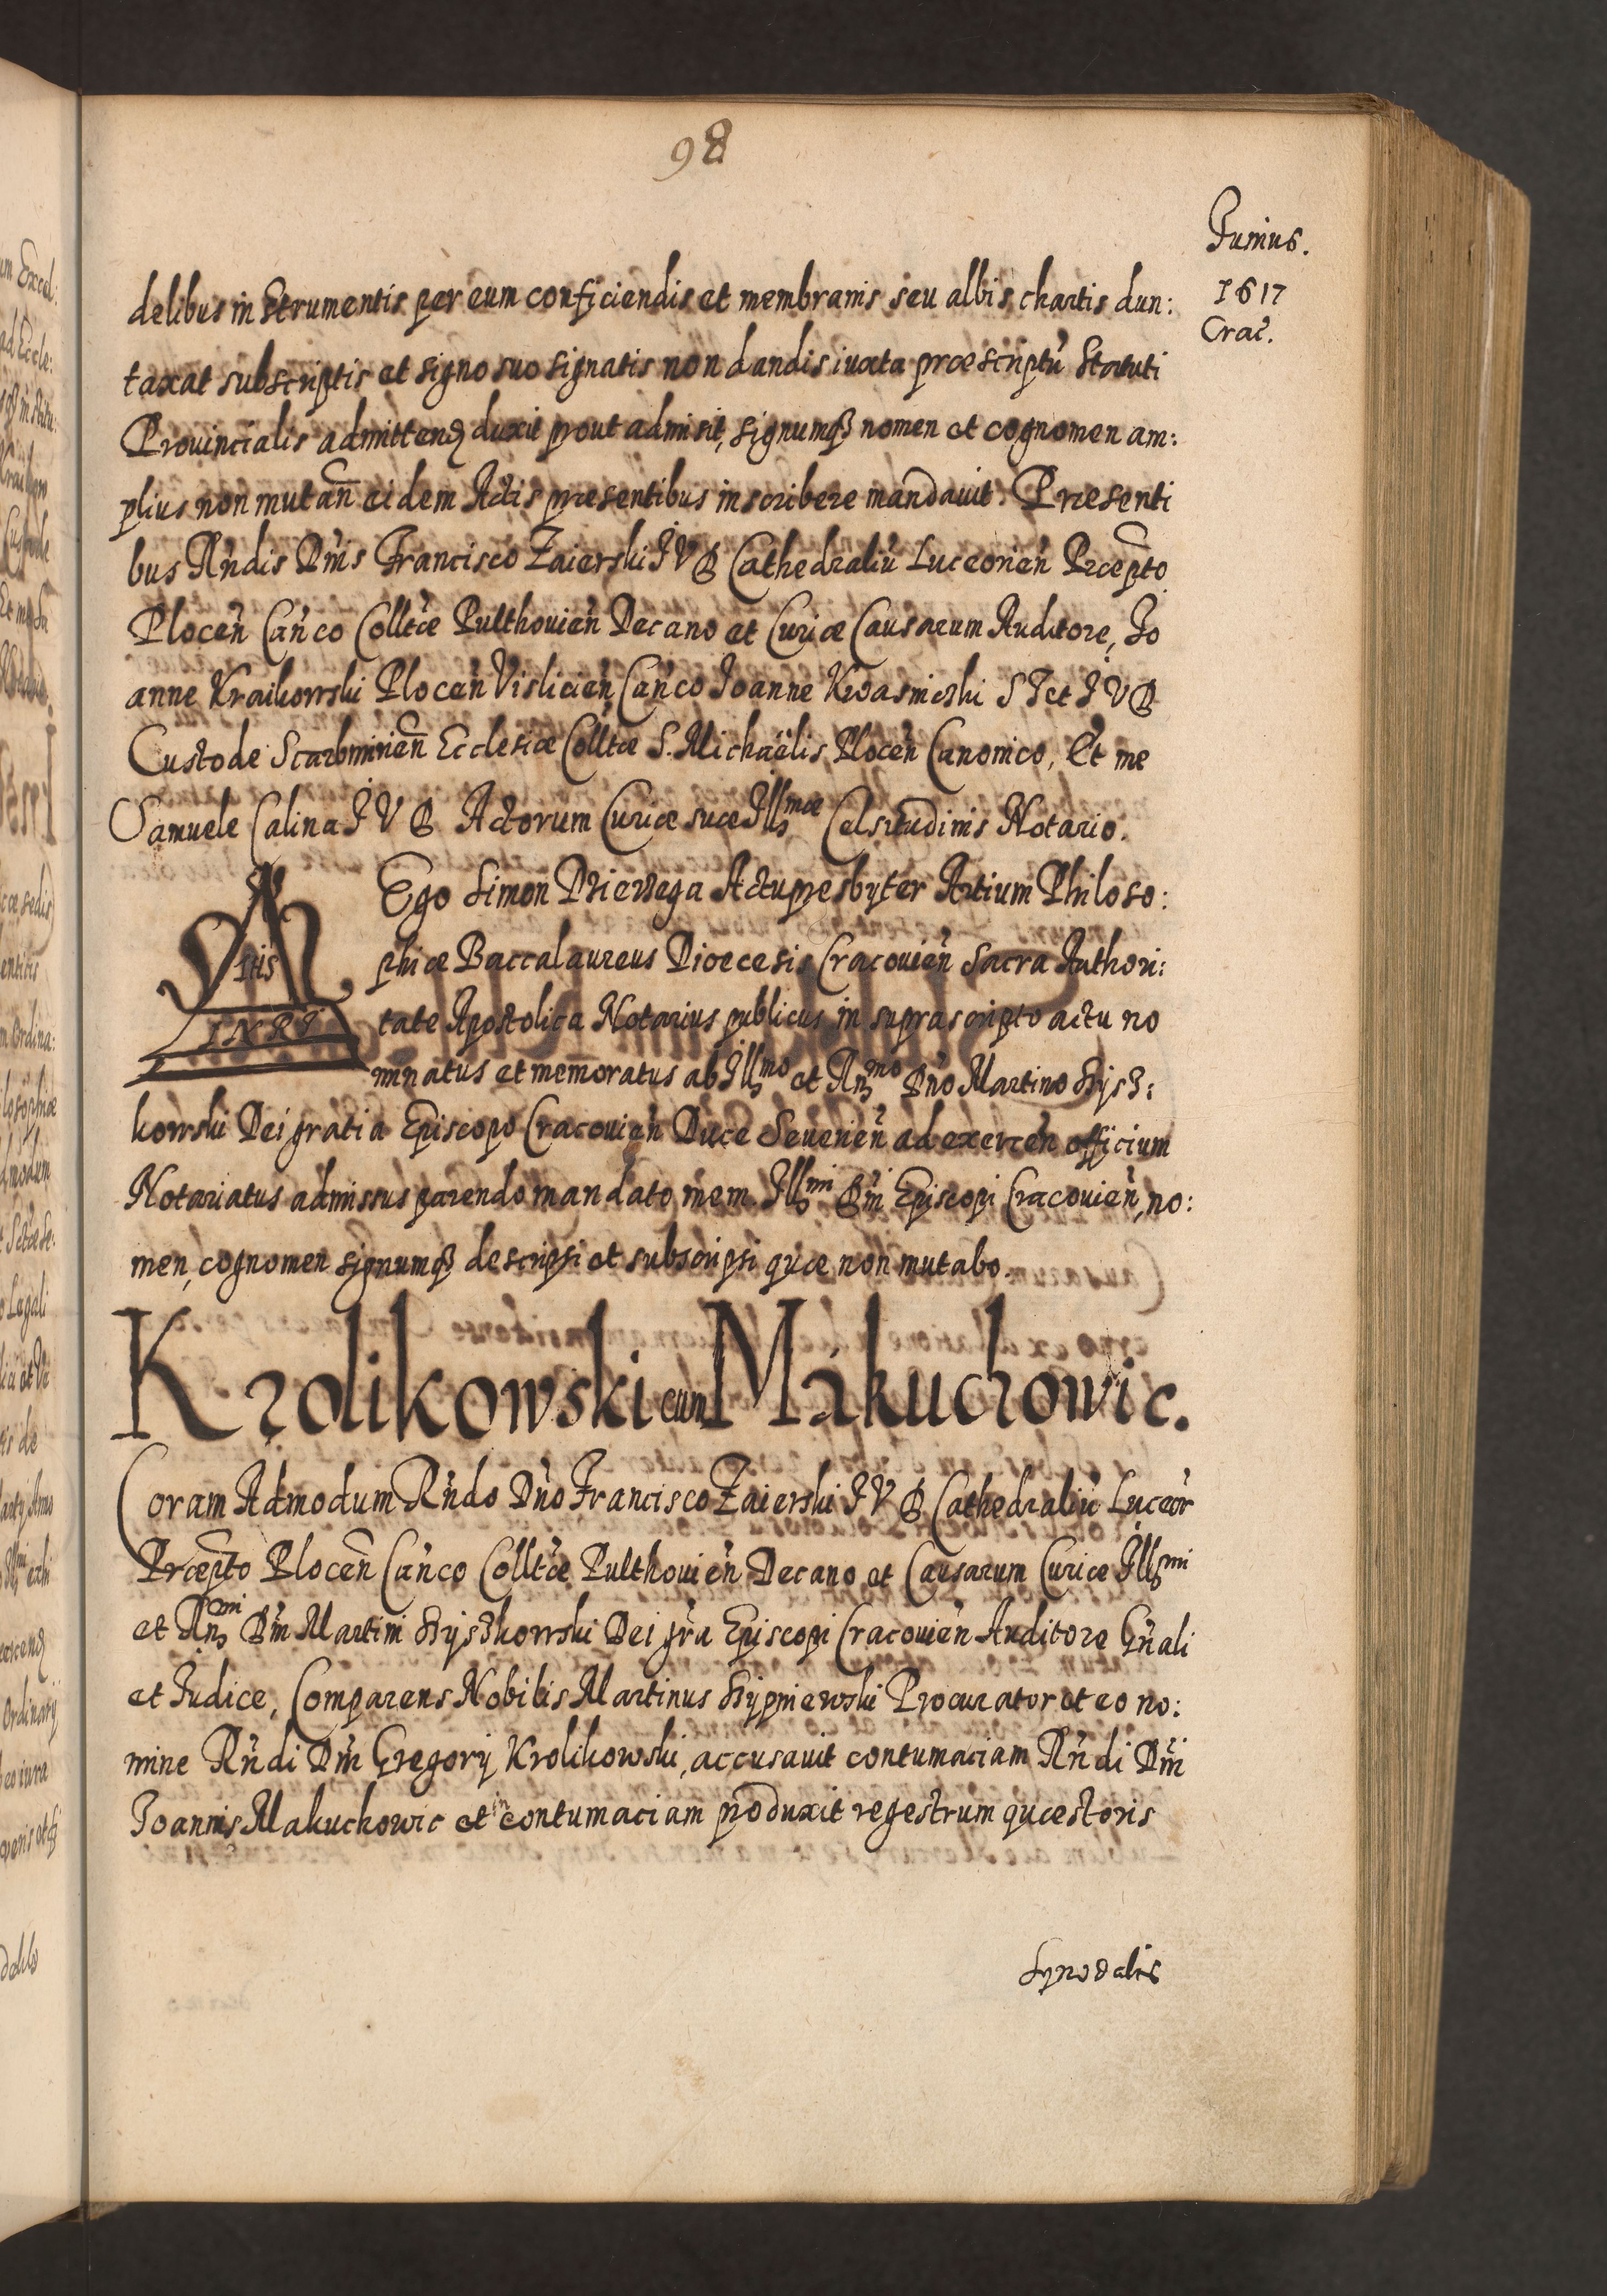 98
Junius.
1617
Crac̃.
delibus in Strumentis per eum conficiendis et membranis seu albis chartis dun:
taxat subscriptis et signo suo signatis non dandis iuxta præscriptũ Statuti
Prouincialis admittenđ duxit prout admisit, signumqꝫ nomen et cognomen am:
plius non mutañ eidem Actis præsentibus inscribere mandauit. Præsenti
bus Rñdis Dñis Francisco Zaierski J V D Cathedraliũ Luceorieñ Præpto
Ploceñ Cañco Colltæ Pulthouieñ Decano et Curiæ Causarum Auditore, Jo
anne Kraikowski Ploceñ Vislicieñ Cañco Joanne Kwasnieski S T et J V D
Custode Scarbmirieñ Ecclesiæ Colltæ S. Michaëlis, Ploceñ Canonico, Et me
Samuele Calina J V D Actorum Curiæ suæ Illmæ Celsitudinis Notario.
INRI
Ego Simon Dzierzega Actu presbyter Artium Philoso:
phiæ Baccalaureus Dioecesis Cracouieñ Sacra Authori:
tate Apostolica Notarius publicus in suprascripto actu no
minatus et memoratus ab Illmo et Rñmo Dño Martino Szysz:
kowski Dei gratia Episcopo Cracouieñ Duce Seuerieñ ad exerceñ officium
Notariatus admissus parendo mandato mem. Illmi Dñi Episcopi Cracouieñ, no:
men, cognomen signumqꝫ descripsi et subscripsi quæ non mutabo.
Krolikowski cum Makuchowic.
Coram Admodum Rñdo Dño Francisco Zaierski J V D Cathedraliũ Luceor̃
Præpto Ploceñ Cañco Colltæ Pulthouieñ Decano et Causarum Curiæ Illmi
et Rñmi Dñi Martini Szyszkowski Dei gr̃a Episcopi Cracouieñ Auditore Gñali
et Judice, Comparens Nobilis Martinus Szypniewski Procurator et eo no:
mine Rñdi Dñi Gregorij Krolikowski, accusauit contumaciam Rñdi Dñi
Joannis Makuchowic et in contumaciam produxit regestrum quæstoris
Synodalis